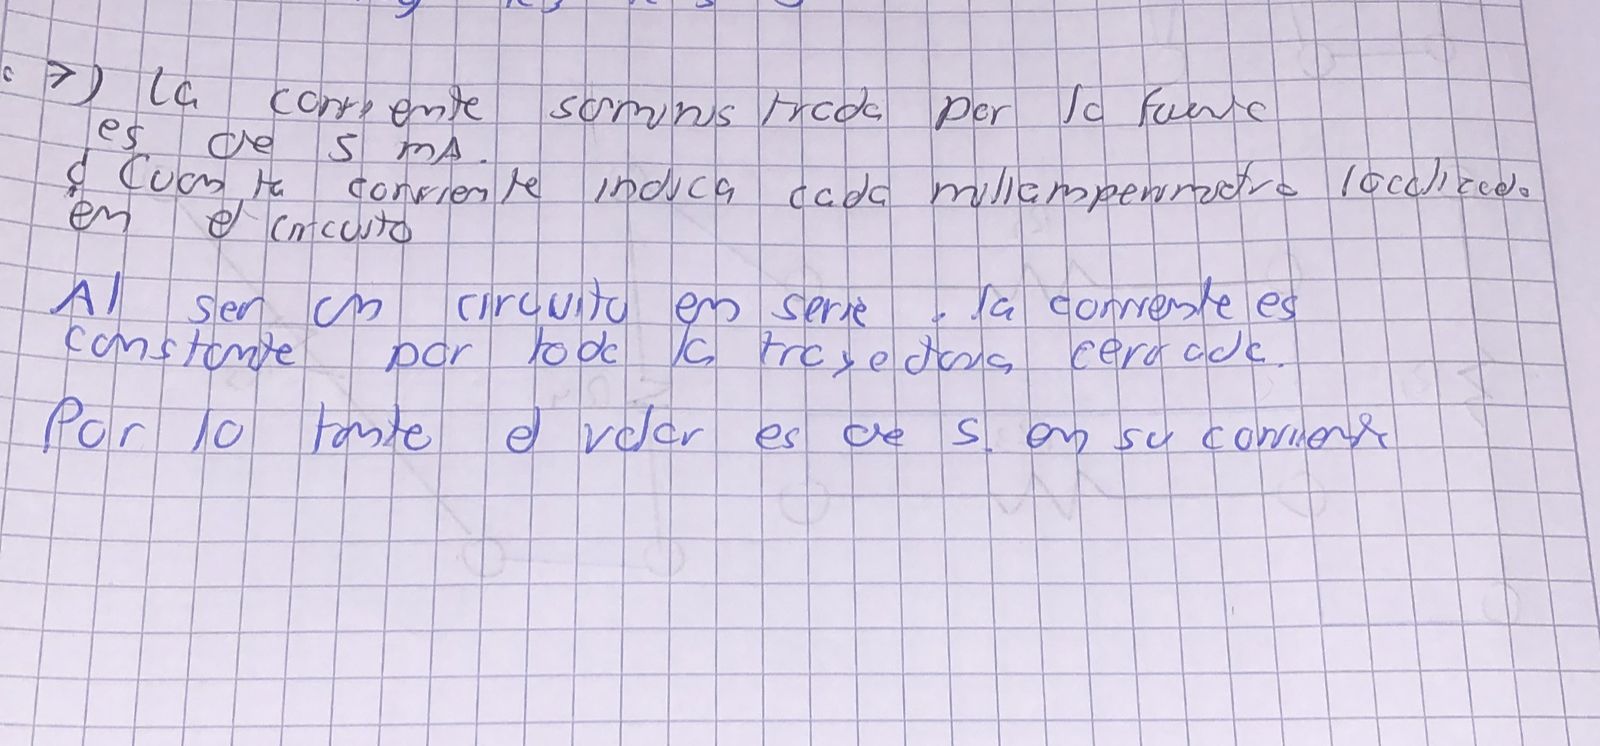 7) La corriente suministrada por la fuente
es de 5 mA.
¿Cuanta corriente indica cada miliamperimetro localizado
en el circuito
Al ser un circuito en serie, la corriente es
constante por toda la trayectoria cerrada.
Por lo tanto el valor es de 5. en su corriente